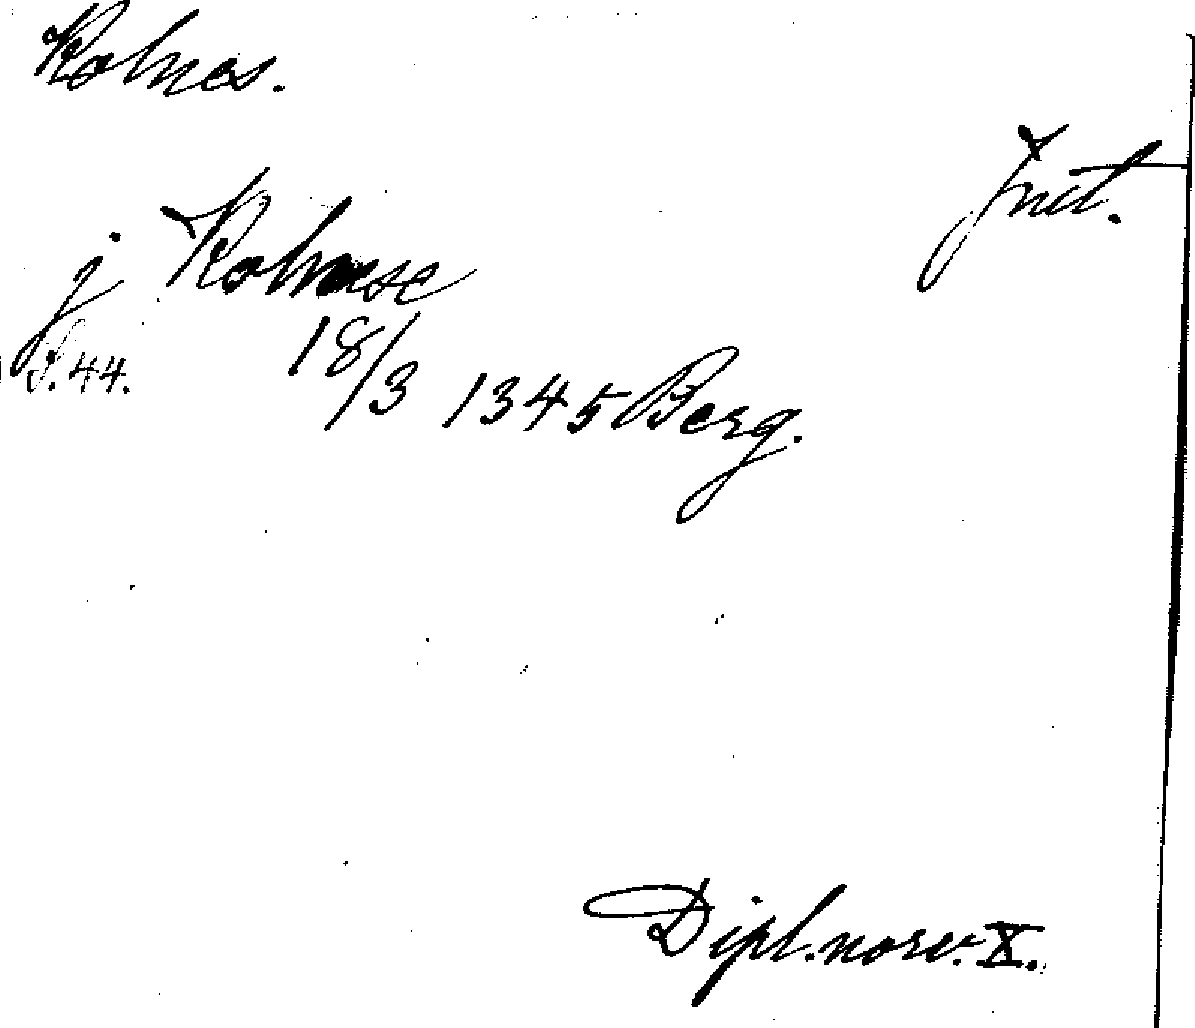 Kolnes.
j Kolnese
S. 44.
18/3 1345 Berg.
Dipl. norv. X.